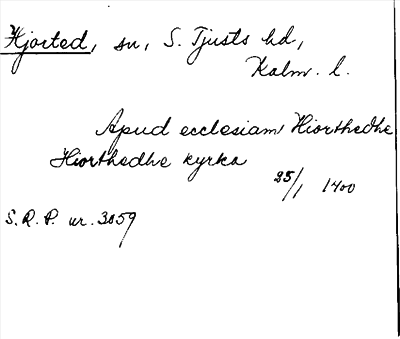 Hjorted, sn, S. Tjusts hd,
Kalm. l.
Apud ecclesiam Hiorthedhe
Hiorthedhe kyrka
25/1 1400
S.R.P. nr. 3059